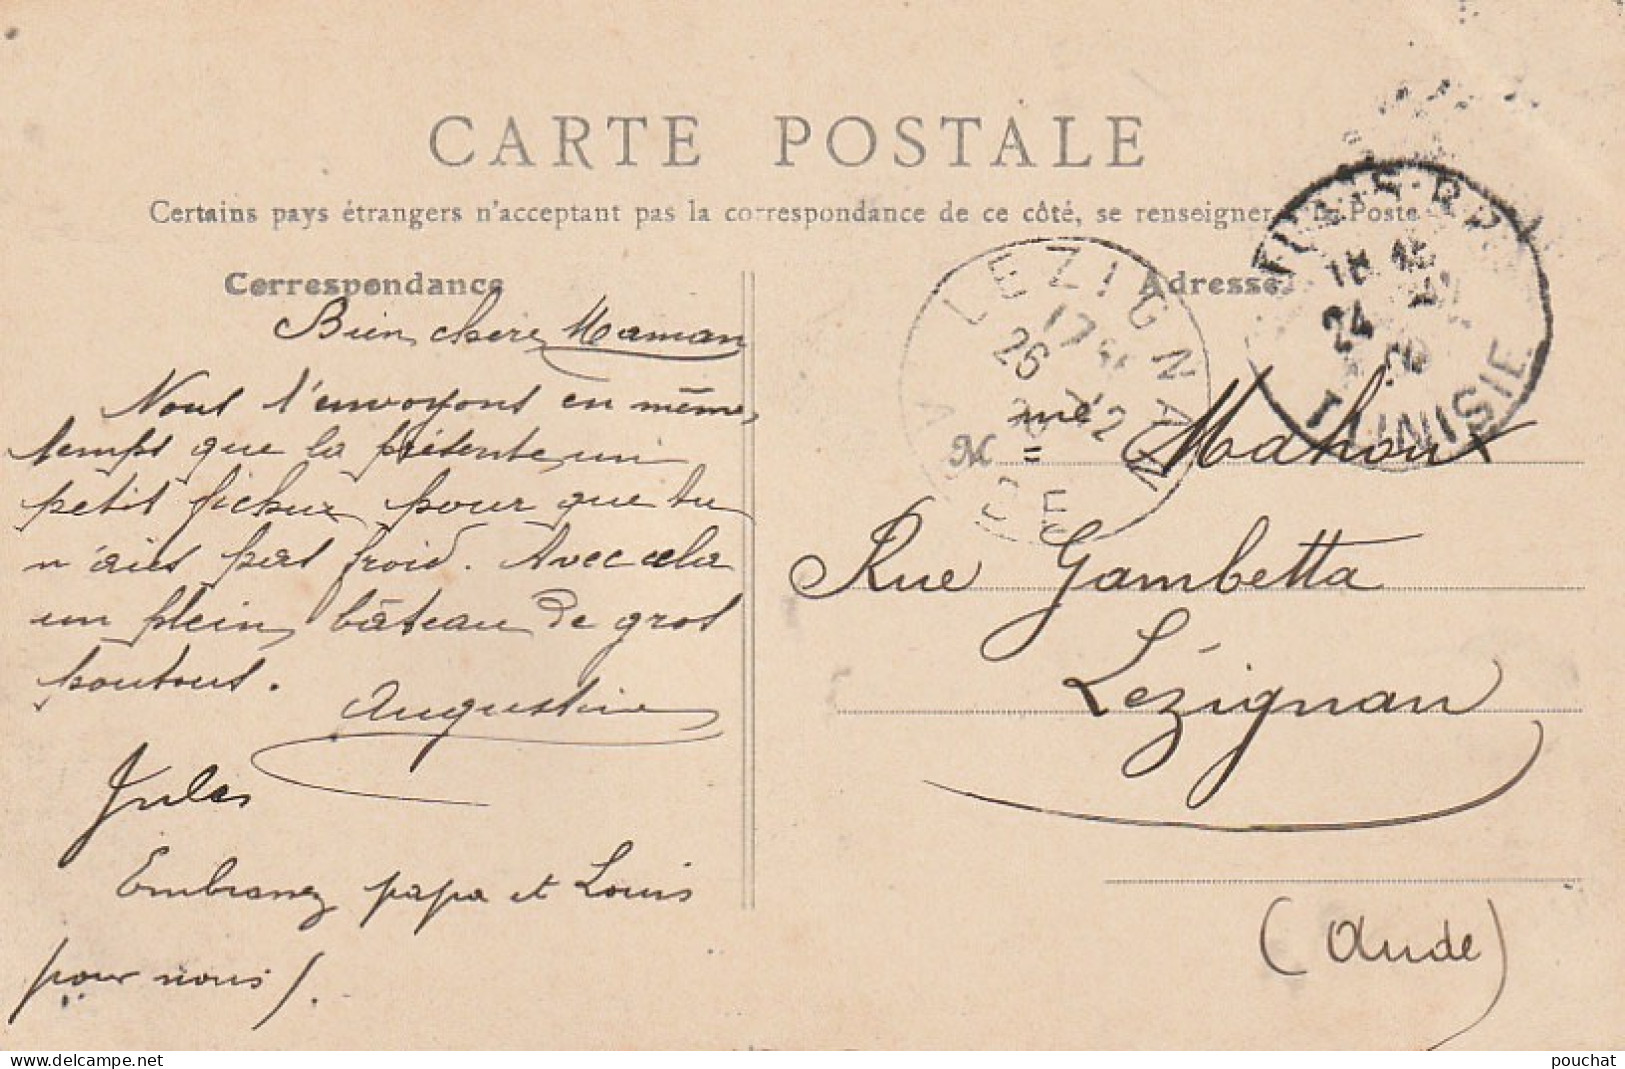 CARTE POSTALE
Certains pays étrangers n'acceptant pas la correspondance de ce côté, se renseigner Poste
Correspondance
Bien chère Maman
Nous t'envoyons en même
temps que la présente un
petit fichux pour que tu
n'aies pas froid. Avec cela
un plein bâteau de gros
poutous.
Augustine
Jules
Embrassez papa et Louis
pour nous /.
Adresse
LEZIGNAN
AUDE
17
26
12
TUNIS R.P.
18 45
24
TUNISIE
M me Mahoux
Rue Gambetta
Lézignan
(Aude)
www.delcampe.net
pouchat